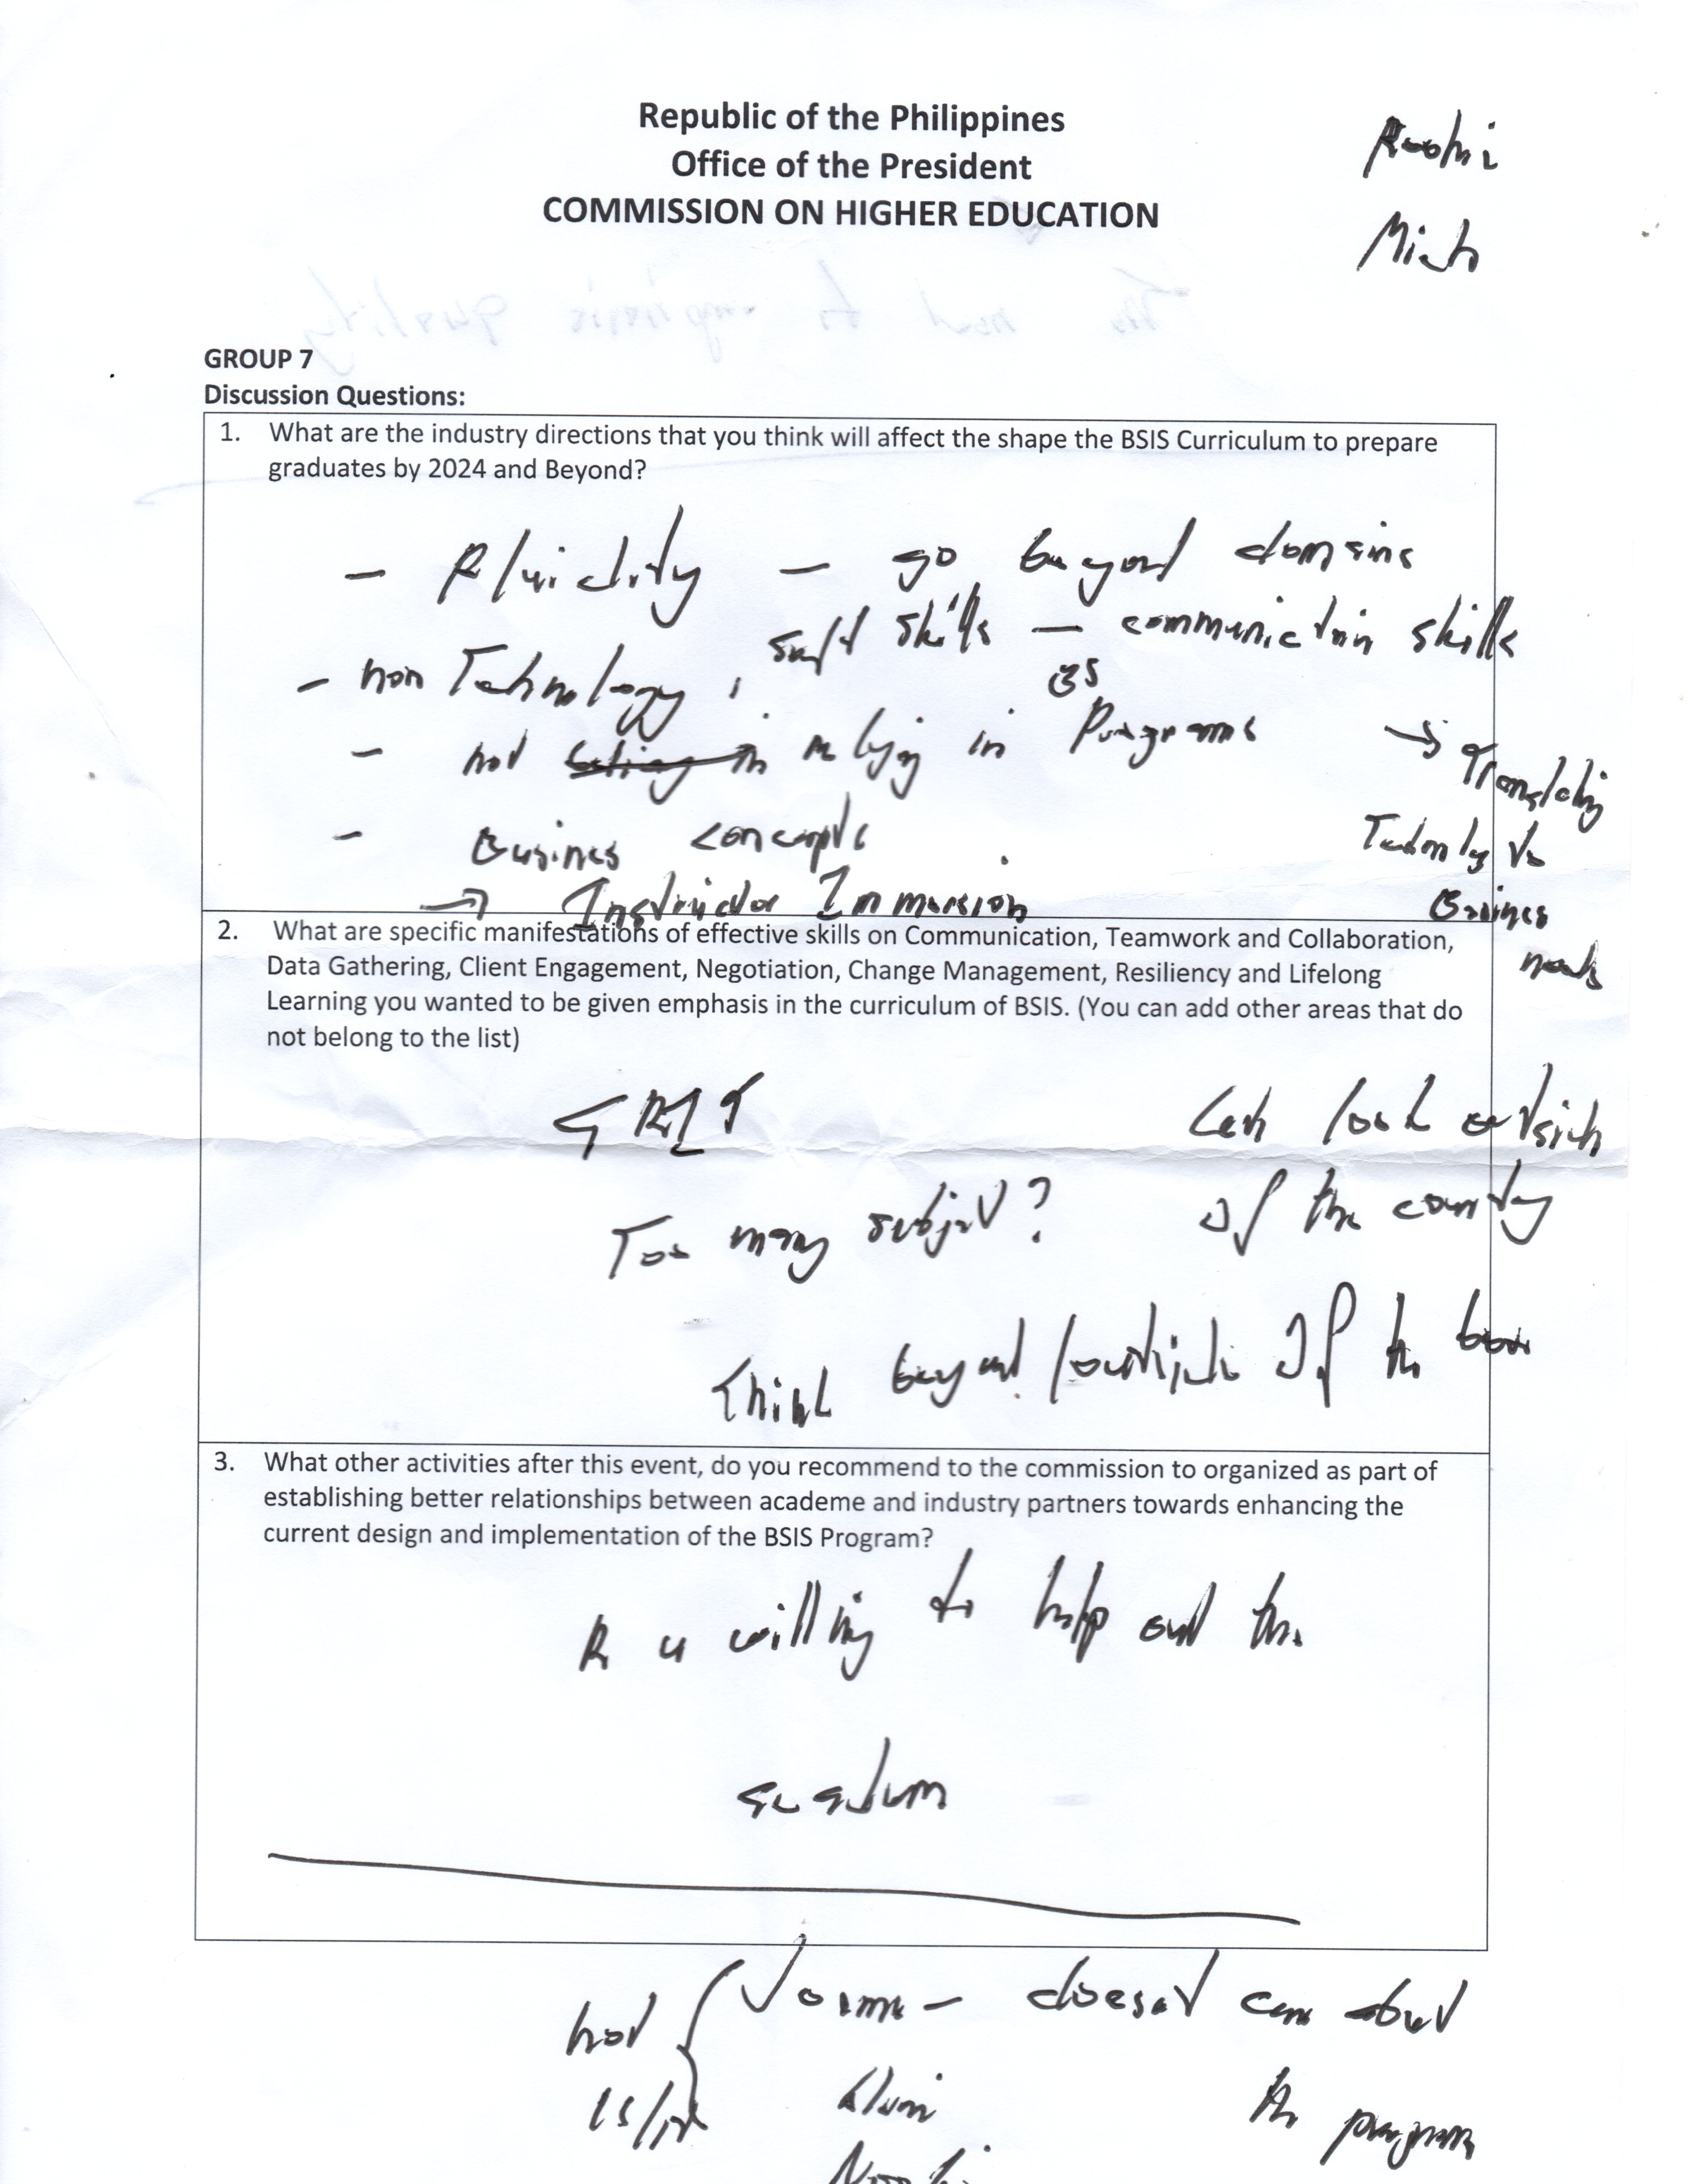 Republic of the Philippines
Office of the President
COMMISSION ON HIGHER EDUCATION
GROUP 7
Discussion Questions:
1. What are the industry directions that you think will affect the shape the BSIS Curriculum to prepare
graduates by 2024 and Beyond?
- Fluidity - go beyond domains
- non Technology, soft skills - communication skills
- not relying in BS Programs → Translating
- Business concepts
Business
needs
→ Instructor Immersion
2. What are specific manifestations of effective skills on Communication, Teamwork and Collaboration,
Data Gathering, Client Engagement, Negotiation, Change Management, Resiliency and Lifelong
Learning you wanted to be given emphasis in the curriculum of BSIS. (You can add other areas that do
not belong to the list)
GRIT
look outside
Too many subject?
of the country
Think beyond / outside of the box
3. What other activities after this event, do you recommend to the commission to organized as part of
establishing better relationships between academe and industry partners towards enhancing the
current design and implementation of the BSIS Program?
R u willing to help out the
not
doesnt care about
IS/IT
the program